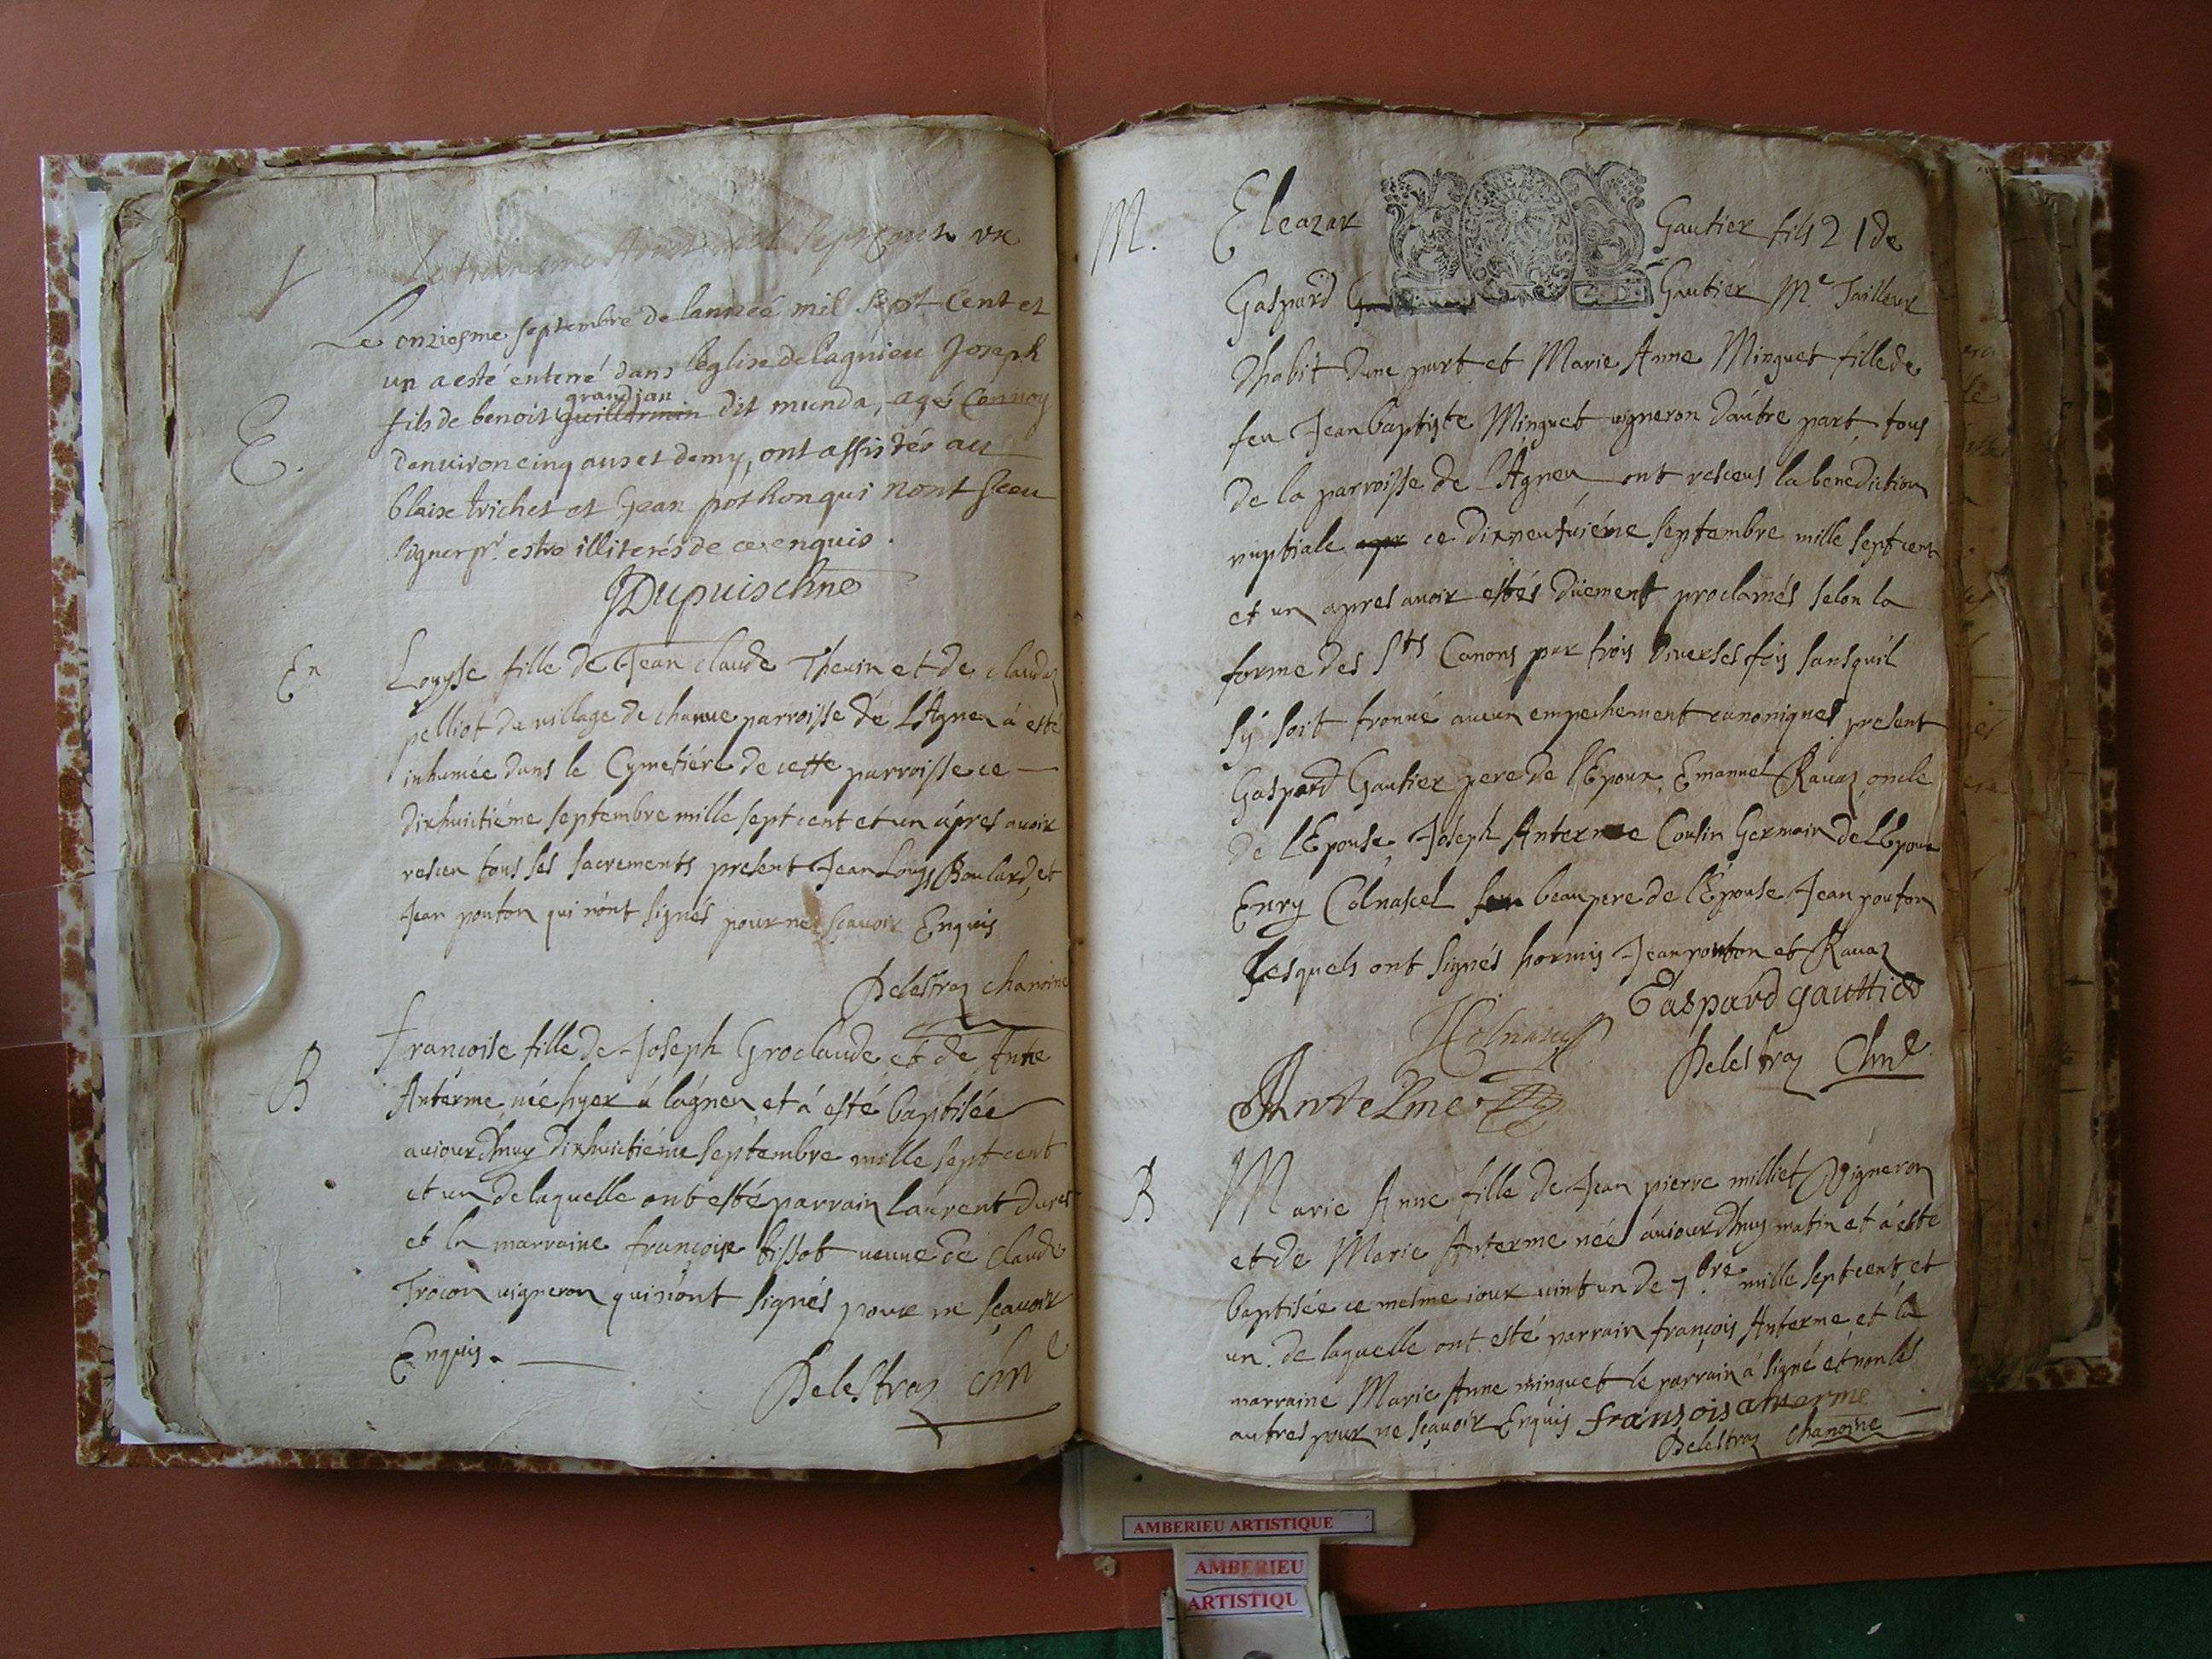 mil sept cent un
Le onziesme septembre de lanneé mil sept Cent et
un a esté enterré dans leglise de lagnieu Joseph
grandjan
E.
fils de benoit guillermin dit munda, agé Convoy
denuiron cinq ans et demy, ont assistés au
blaise trichet et Jean pothon qui nont sceu
signer pr. estre illiterés de ce enquis.
JDupuis chne
En
Louyse fille de Jean claude Theuin et de claudaz
pelliot du village de chanue parroisse de LAgneu á esté
inhumée dans le Cymetiére de cette parroisse ce —
dixhuictiéme septembre mille sept cent et un ápres auoir
resceu tous ses sacrements present Jean Louys Boulard, et
Jean pouton qui nónt signés pour ne sçauoir Enquis
Delestraz chanoine
B
françoise fille de Joseph Groclaude et de Anne
Anterme, née hyer á lágneu et á esté baptisée
auiourdhuy dixhuictiéme septembre mille sept cent
et un de laquelle ont esté parrain Laurent duret
et la marraine françoise bissot ueuue de claude
Trocon uigneron qui nónt signés pour ne sçauoir
Enquis. —
Delestraz chne
M.
Eleazar Gautier fils 21 de
Gaspard Gautier Me Tailleur
dhabit dune part et Marie Anne Minguet fille de
feu Jean baptiste Minguet uigneron dáutre part, tous
de la parroisse de LAgneu ont resceus la benediction
nuptiale apr ce dixneufuiéme septembre mille sept cent
et un apres auoir estés düement proclamés selon la
forme des Sts Canons par trois diuerses fois sans quíl
sý soit trouué aucun empechement canoniques present
Gaspard Gautier pere de lEpoux, Emanuel Rauaz oncle
de LEpouse, Joseph Anterme Cousin Germain de LEpoux
Enry Colnascel beaupere de lEpouse Jean pouton
Lesquels ont signés hormis Jean pouton et Rauaz
Gaspard gauttier
HColnascel
Delestraz Chne
Antelme
B
Marie Anne fille de Jean pierre milliet Vigneron
et de Marie Anterme née áuiourdhuy matin et á esté
baptisée ce mesme iour uint un de 7.bre mille sept cent et
un. de laquelle ont esté parrain françois Anterme et la
marraine Marie Anne minguet le parrain á signé et non les
autres pour ne sçauoir Enquis fransois anterme
Delestraz chanoine —
AMBERIEU ARTISTIQUE
AMBERIEU
ARTISTIQU